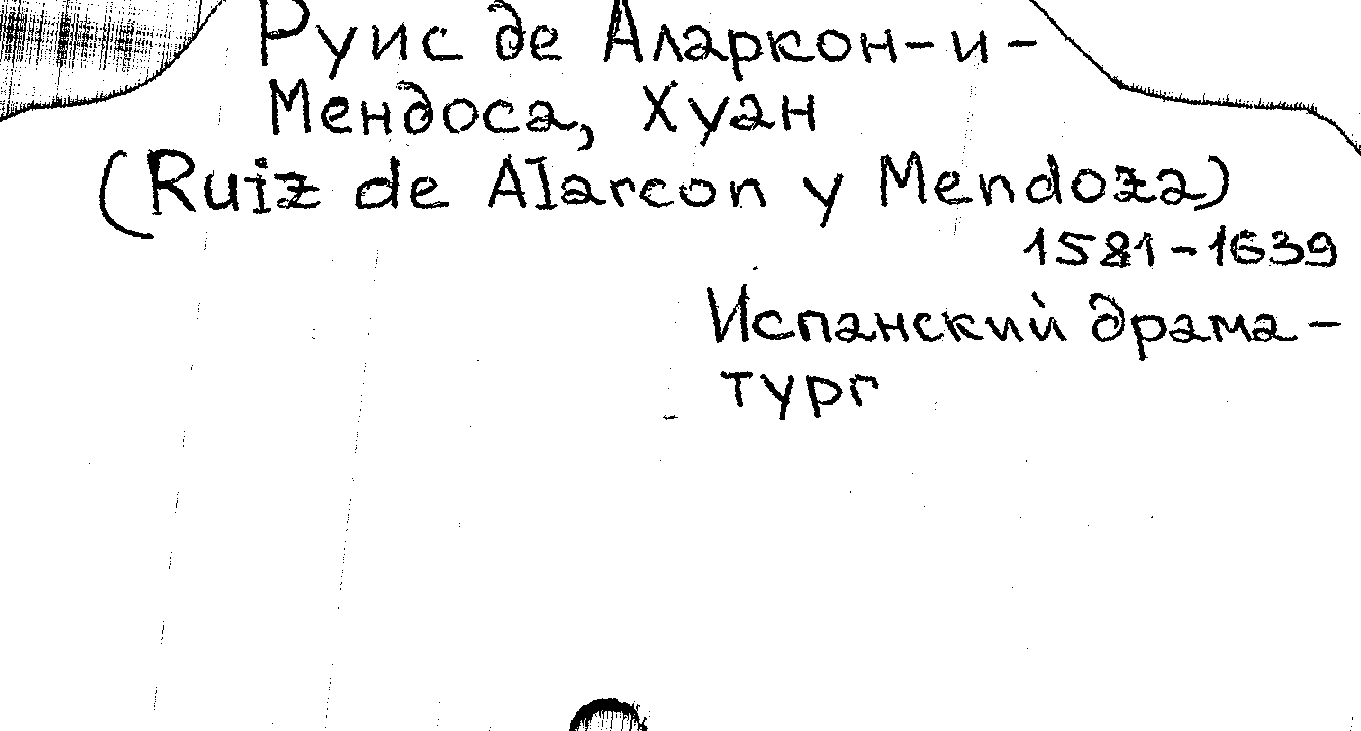 Руис де Аларкон-и-
Мендоса, Хуан
(Ruiz de Alarcon y Mendoza)
1581-1639
Испанский драма-
тург